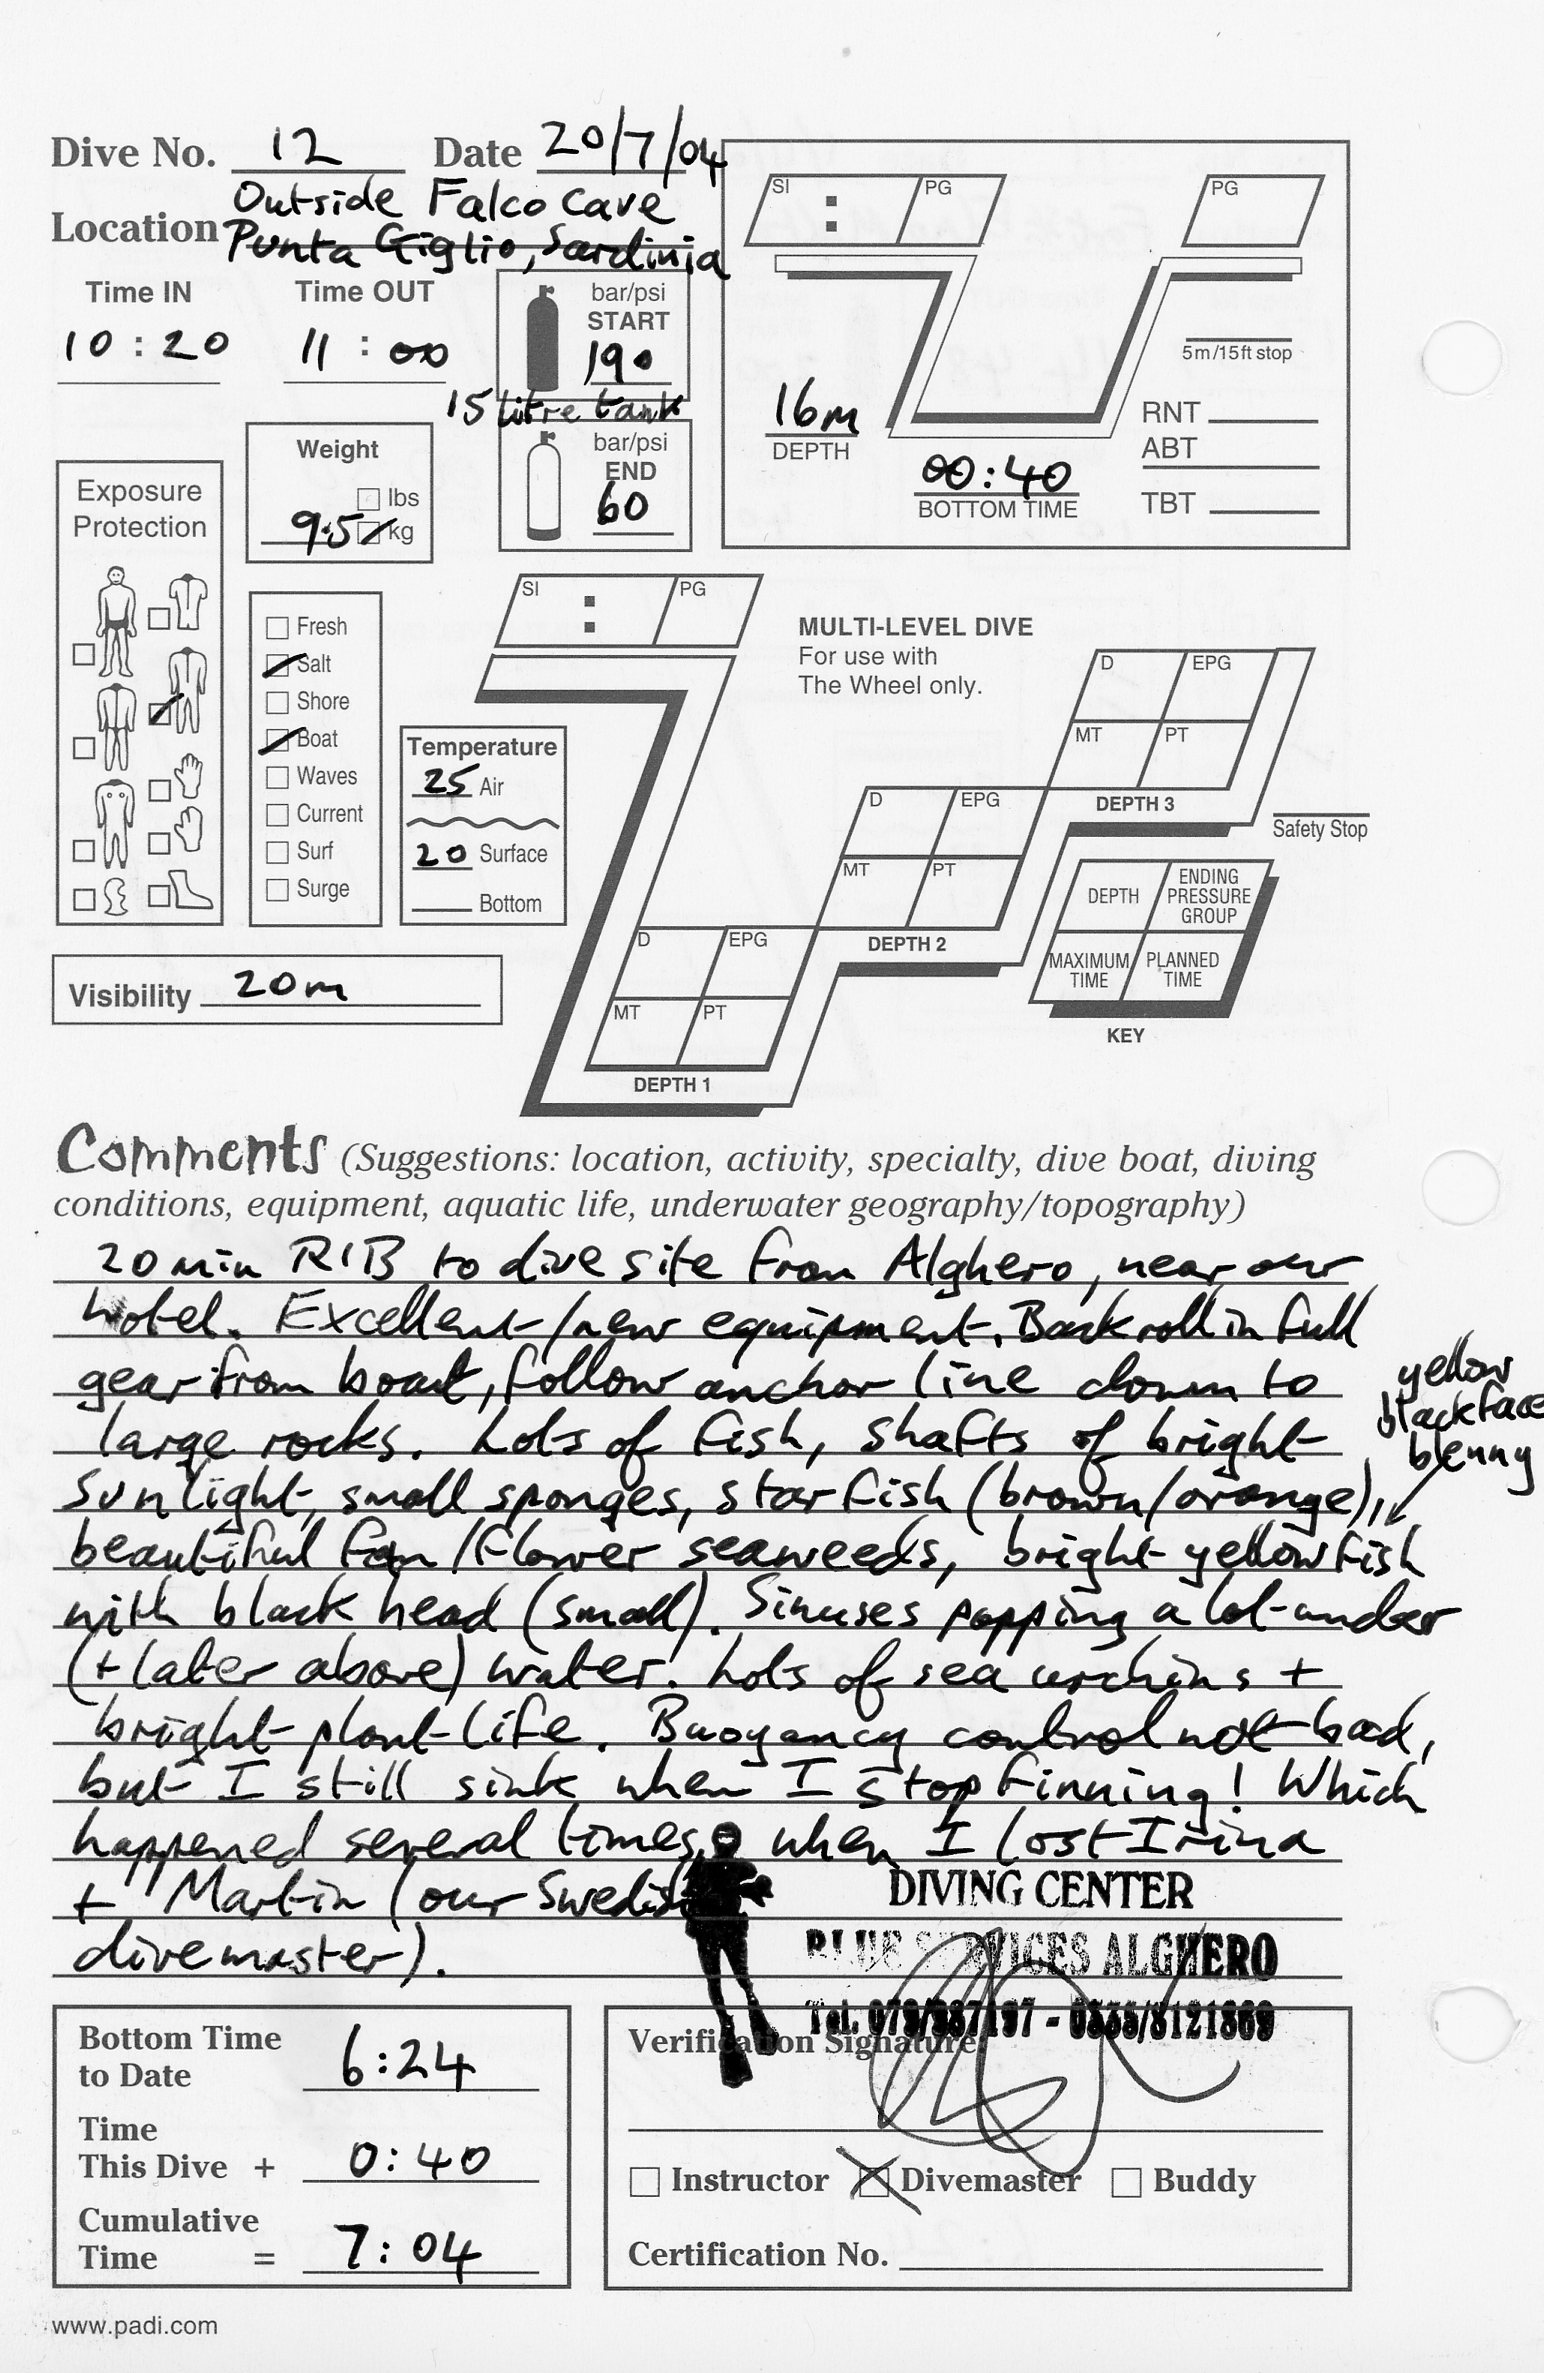 Dive No. 12 Date 20/7/04
Outside Falco Cave
Location Punta Giglio, Sardinia
Time IN Time OUT
10:20 11:00
bar/psi
START
190
15 litre tank
bar/psi
END
60
Weight
lbs
9.5 kg
Exposure
Protection
Fresh
Salt
Shore
Boat
Waves
Current
Surf
Surge
Temperature
25 Air
20 Surface
Bottom
Visibility 20m
SI : PG
PG
5m/15ft stop
16m
DEPTH
00:40
BOTTOM TIME
RNT
ABT
TBT
SI : PG
MULTI-LEVEL DIVE
For use with
The Wheel only.
D EPG
MT PT
DEPTH 3
Safety Stop
D EPG
MT PT
DEPTH 2
D EPG
MT PT
DEPTH 1
DEPTH
ENDING
PRESSURE
GROUP
MAXIMUM
TIME
PLANNED
TIME
KEY
Comments (Suggestions: location, activity, specialty, dive boat, diving
conditions, equipment, aquatic life, underwater geography/topography)
20 min RIB to dive site from Alghero, near our
hotel. Excellent/new equipment. Back roll in full
gear from boat, follow anchor line down to
large rocks. Lots of fish, shafts of bright
sunlight, small sponges, starfish (brown/orange),
beautiful fan/flower seaweeds, bright yellow fish
with black head (small). Sinuses popping a lot under
(+ later above) water. Lots of sea urchins +
bright plant life. Buoyancy control not bad,
but I still sink when I stop finning! Which
happened several times, when I lost Irina
+ Martin (our Swedish
divemaster).
yellow
blackface
blenny
DIVING CENTER
BLUE SERVICES ALGHERO
Tel.
Bottom Time
to Date 6:24
Time
This Dive + 0:40
Cumulative
Time = 7:04
Verification Signature
Instructor Divemaster Buddy
Certification No.
www.padi.com